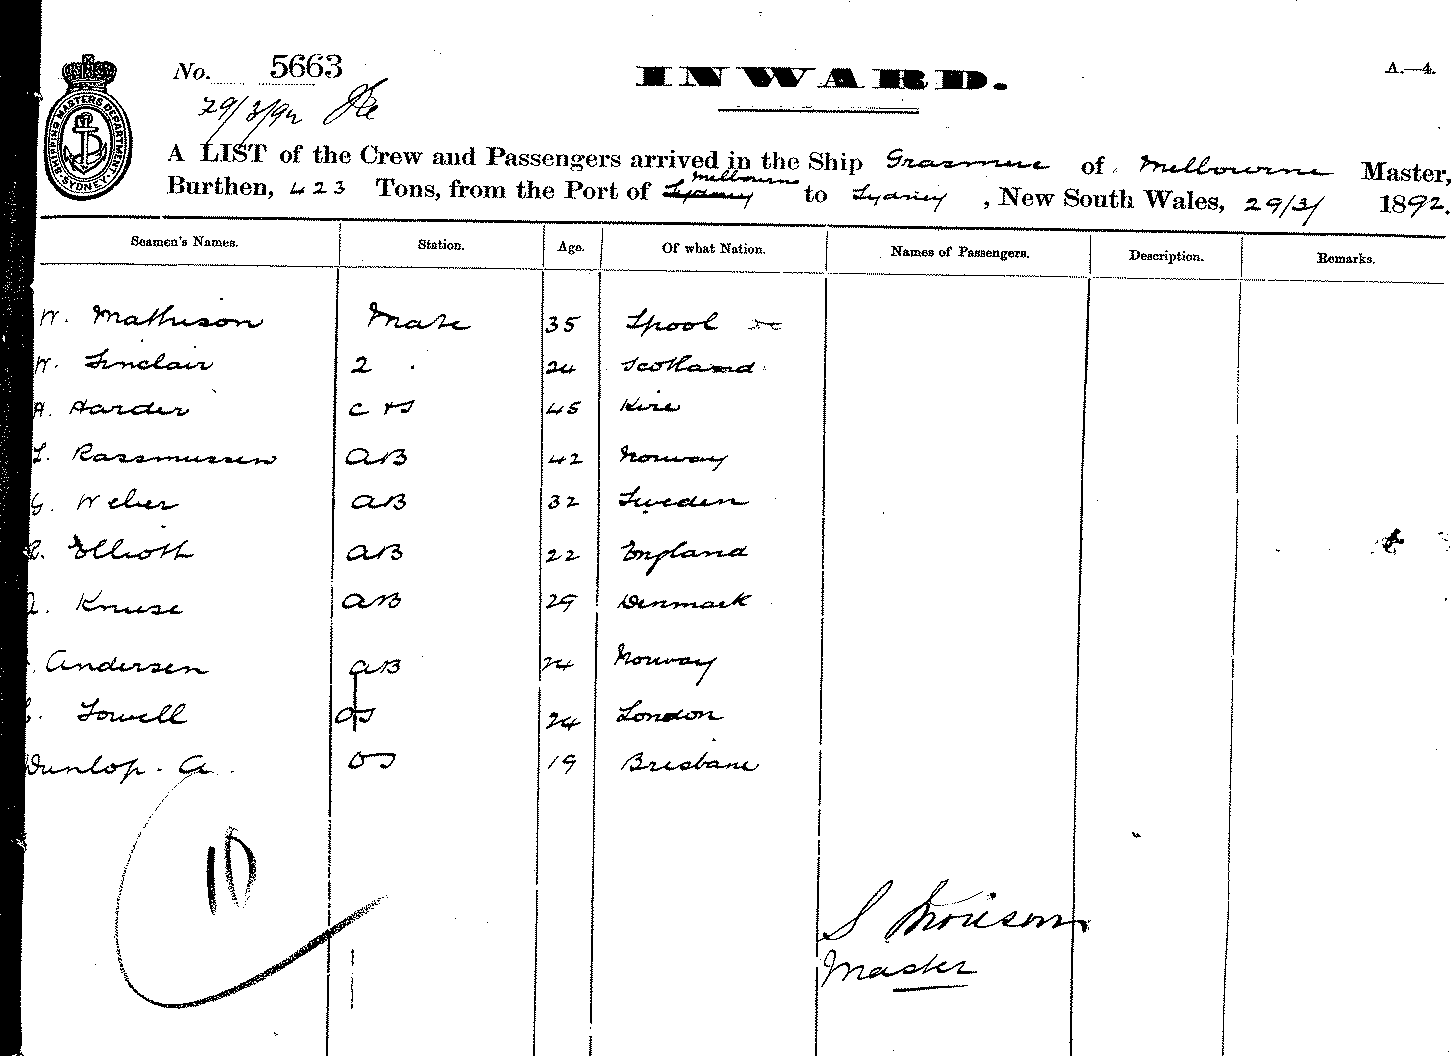 No. 5663
INWARD.
A.—4.
29/3/92
SHIPPING MASTERS DEPARTMENT SYDNEY
A LIST of the Crew and Passengers arrived in the Ship Grasmere of Melbourne Master,
Burthen, 423 Tons, from the Port of Sydney Melbourne to Sydney, New South Wales, 29/3/ 1892.
Seamen's Names. Station. Age. Of what Nation. Names of Passengers. Description. Remarks.
W. Mathison Mate 35 L'pool
W. Sinclair 2 24 Scotland
A. Harder C & S 45 Kiel
L. Rassmussen AB 42 Norway
G. Weber AB 32 Sweden
Elliott AB 22 England
Kruse AB 29 Denmark
Andersen AB 24 Norway
Lowell OS 24 London
Dunlop. A. OS 19 Brisbane
10
S Morison
Master